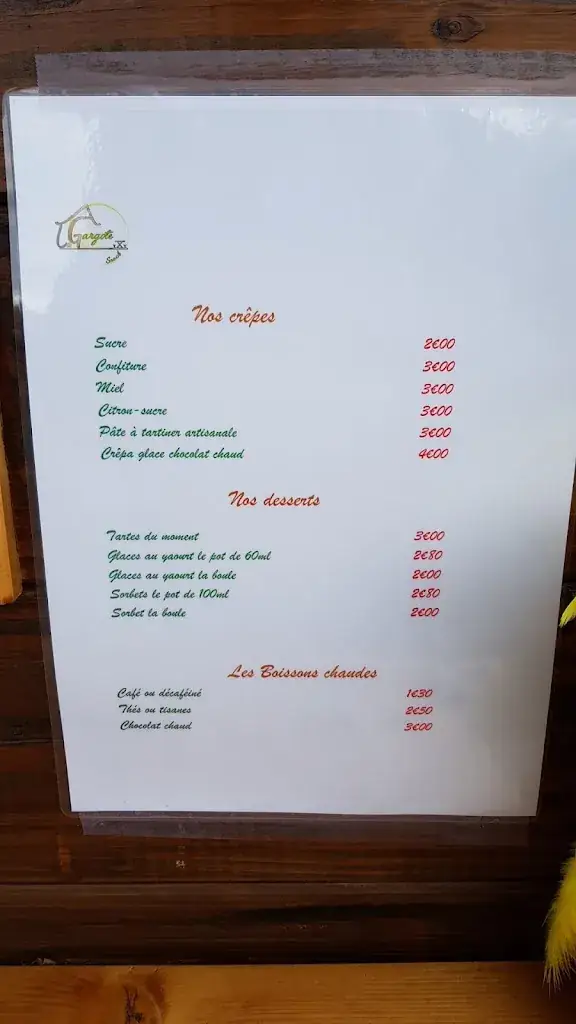 Gargote
Nos crêpes
Sucre 2€00
Confiture 3€00
Miel 3€00
Citron-sucre 3€00
Pâte à tartiner artisanale 3€00
Crêpa glace chocolat chaud 4€00
Nos desserts
Tartes du moment 3€00
Glaces au yaourt le pot de 60ml 2€80
Glaces au yaourt la boule 2€00
Sorbets le pot de 100ml 2€80
Sorbet la boule 2€00
Les Boissons chaudes
Café ou décaféiné 1€30
Thés ou tisanes 2€50
Chocolat chaud 3€00